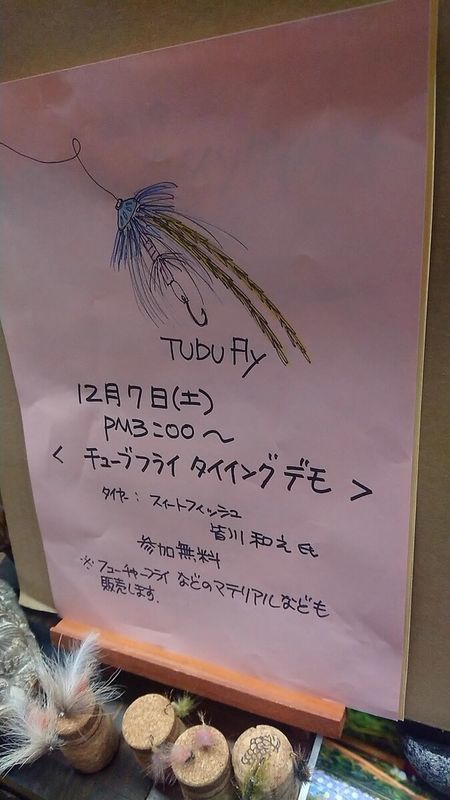 TUBU Fly
12月7日(土)
PM3:00〜
< チューブフライ タイイング デモ >
タイヤー: スイートフィッシュ
皆川和え氏
参加無料
※フューチャーフライ などのマテリアルなども
販売します.